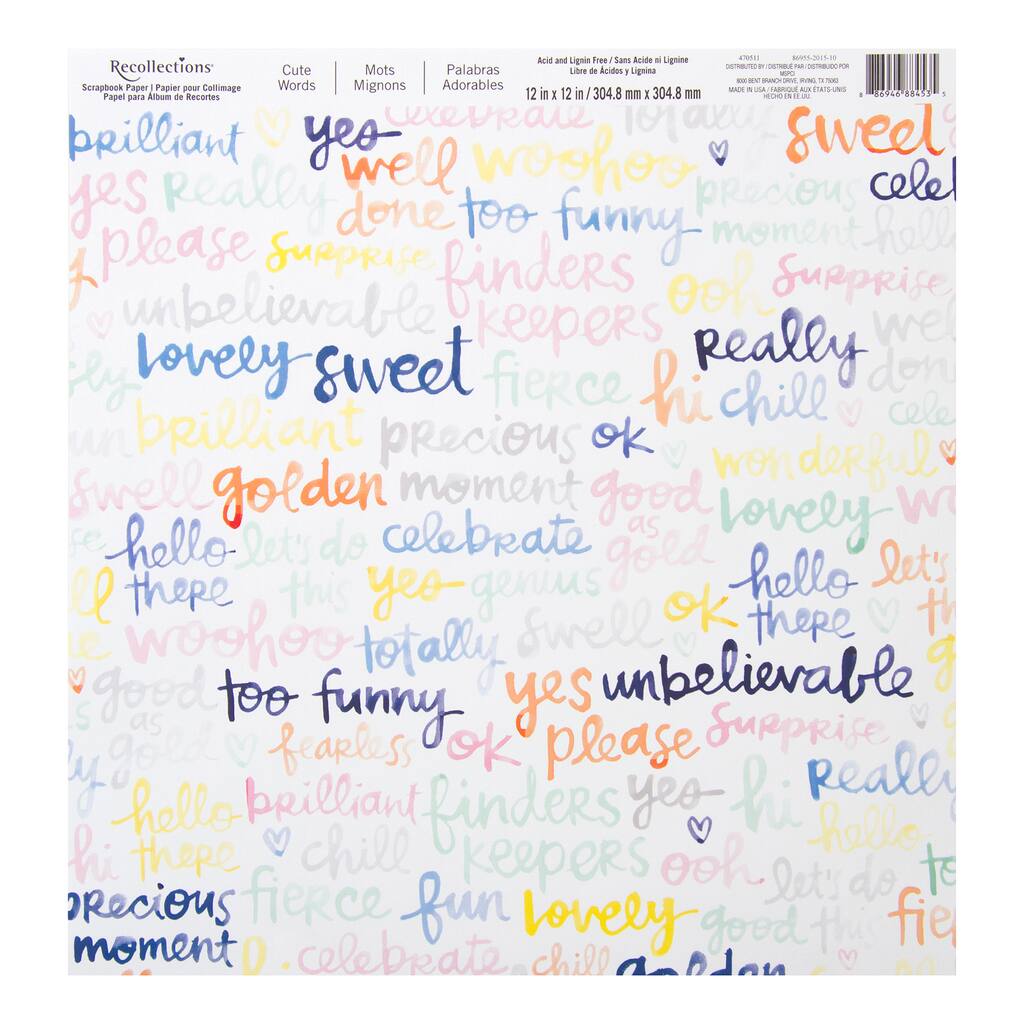 Recollections®
Scrapbook Paper | Papier pour Collimage
Papel para Álbum de Recortes
Cute Words | Mots Mignons | Palabras Adorables
Acid and Lignin Free / Sans Acide ni Lignine
Libre de Ácidos y Lignina
12 in x 12 in / 304.8 mm x 304.8 mm
470511 86955-2015-10
DISTRIBUTED BY / DISTRIBUÉ PAR / DISTRIBUIDO POR
MSPCI
8000 BENT BRANCH DRIVE, IRVING, TX 75063
MADE IN USA / FABRIQUÉ AUX ÉTATS-UNIS
HECHO EN EE.UU.
8 86946 88453 5
celebrate totally
brilliant yes well woohoo sweet
yes really done too funny precious cele
please surprise finders moment hello
unbelievable keepers ooh surprise
lovely sweet really well
fierce hi chill done
brilliant precious ok cele
un wonderful
swell golden moment good lovely wo
hello let's do celebrate as gold hello let's
there this yes genius ok there th
woohoo totally swell
good too funny yes unbelievable
as gold fearless ok please surprise
really
hello brilliant finders yes hi hello
hi there chill keepers ooh let's do to
precious fierce fun lovely good this fie
moment celebrate chill golden